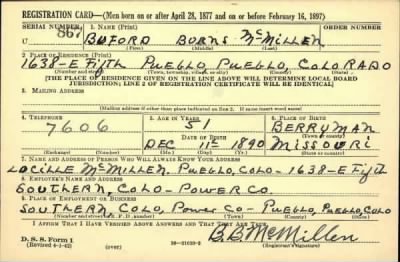 REGISTRATION CARD—(Men born on or after April 28, 1877 and on or before February 16, 1897)
SERIAL NUMBER 1. NAME (Print)
U 867 BUFORD BURNS McMILLEN
(First) (Middle) (Last)
2. PLACE OF RESIDENCE (Print)
1638-E FIFTH PUEBLO, PUEBLO, COLORADO
(Number and street) (Town, township, village, or city) (County) (State)
[THE PLACE OF RESIDENCE GIVEN ON THE LINE ABOVE WILL DETERMINE LOCAL BOARD
JURISDICTION; LINE 2 OF REGISTRATION CERTIFICATE WILL BE IDENTICAL]
3. MAILING ADDRESS
(Mailing address if other than place indicated on line 2. If same insert word same)
4. TELEPHONE 5. AGE IN YEARS 6. PLACE OF BIRTH
7606 51 BERRYMAN
DATE OF BIRTH (Town or county)
DEC 11th 1890 MISSOURI
(Exchange) (Number) (Mo.) (Day) (Yr.) (State or country)
7. NAME AND ADDRESS OF PERSON WHO WILL ALWAYS KNOW YOUR ADDRESS
LUCILLE McMILLEN, PUEBLO, COLO- 1638-E FIFTH
8. EMPLOYER'S NAME AND ADDRESS
SOUTHERN, COLO-POWER CO.
9. PLACE OF EMPLOYMENT OR BUSINESS
SOUTHERN, COLO, POWER CO- PUEBLO, PUEBLO, COLO
(Number and street or R. F. D. number) (Town) (County) (State)
I AFFIRM THAT I HAVE VERIFIED ABOVE ANSWERS AND THAT THEY ARE TRUE.
B. B. McMillen
D. S. S. Form 1 (Revised 4-1-42) (over) 16—21630-2 (Registrant's signature)